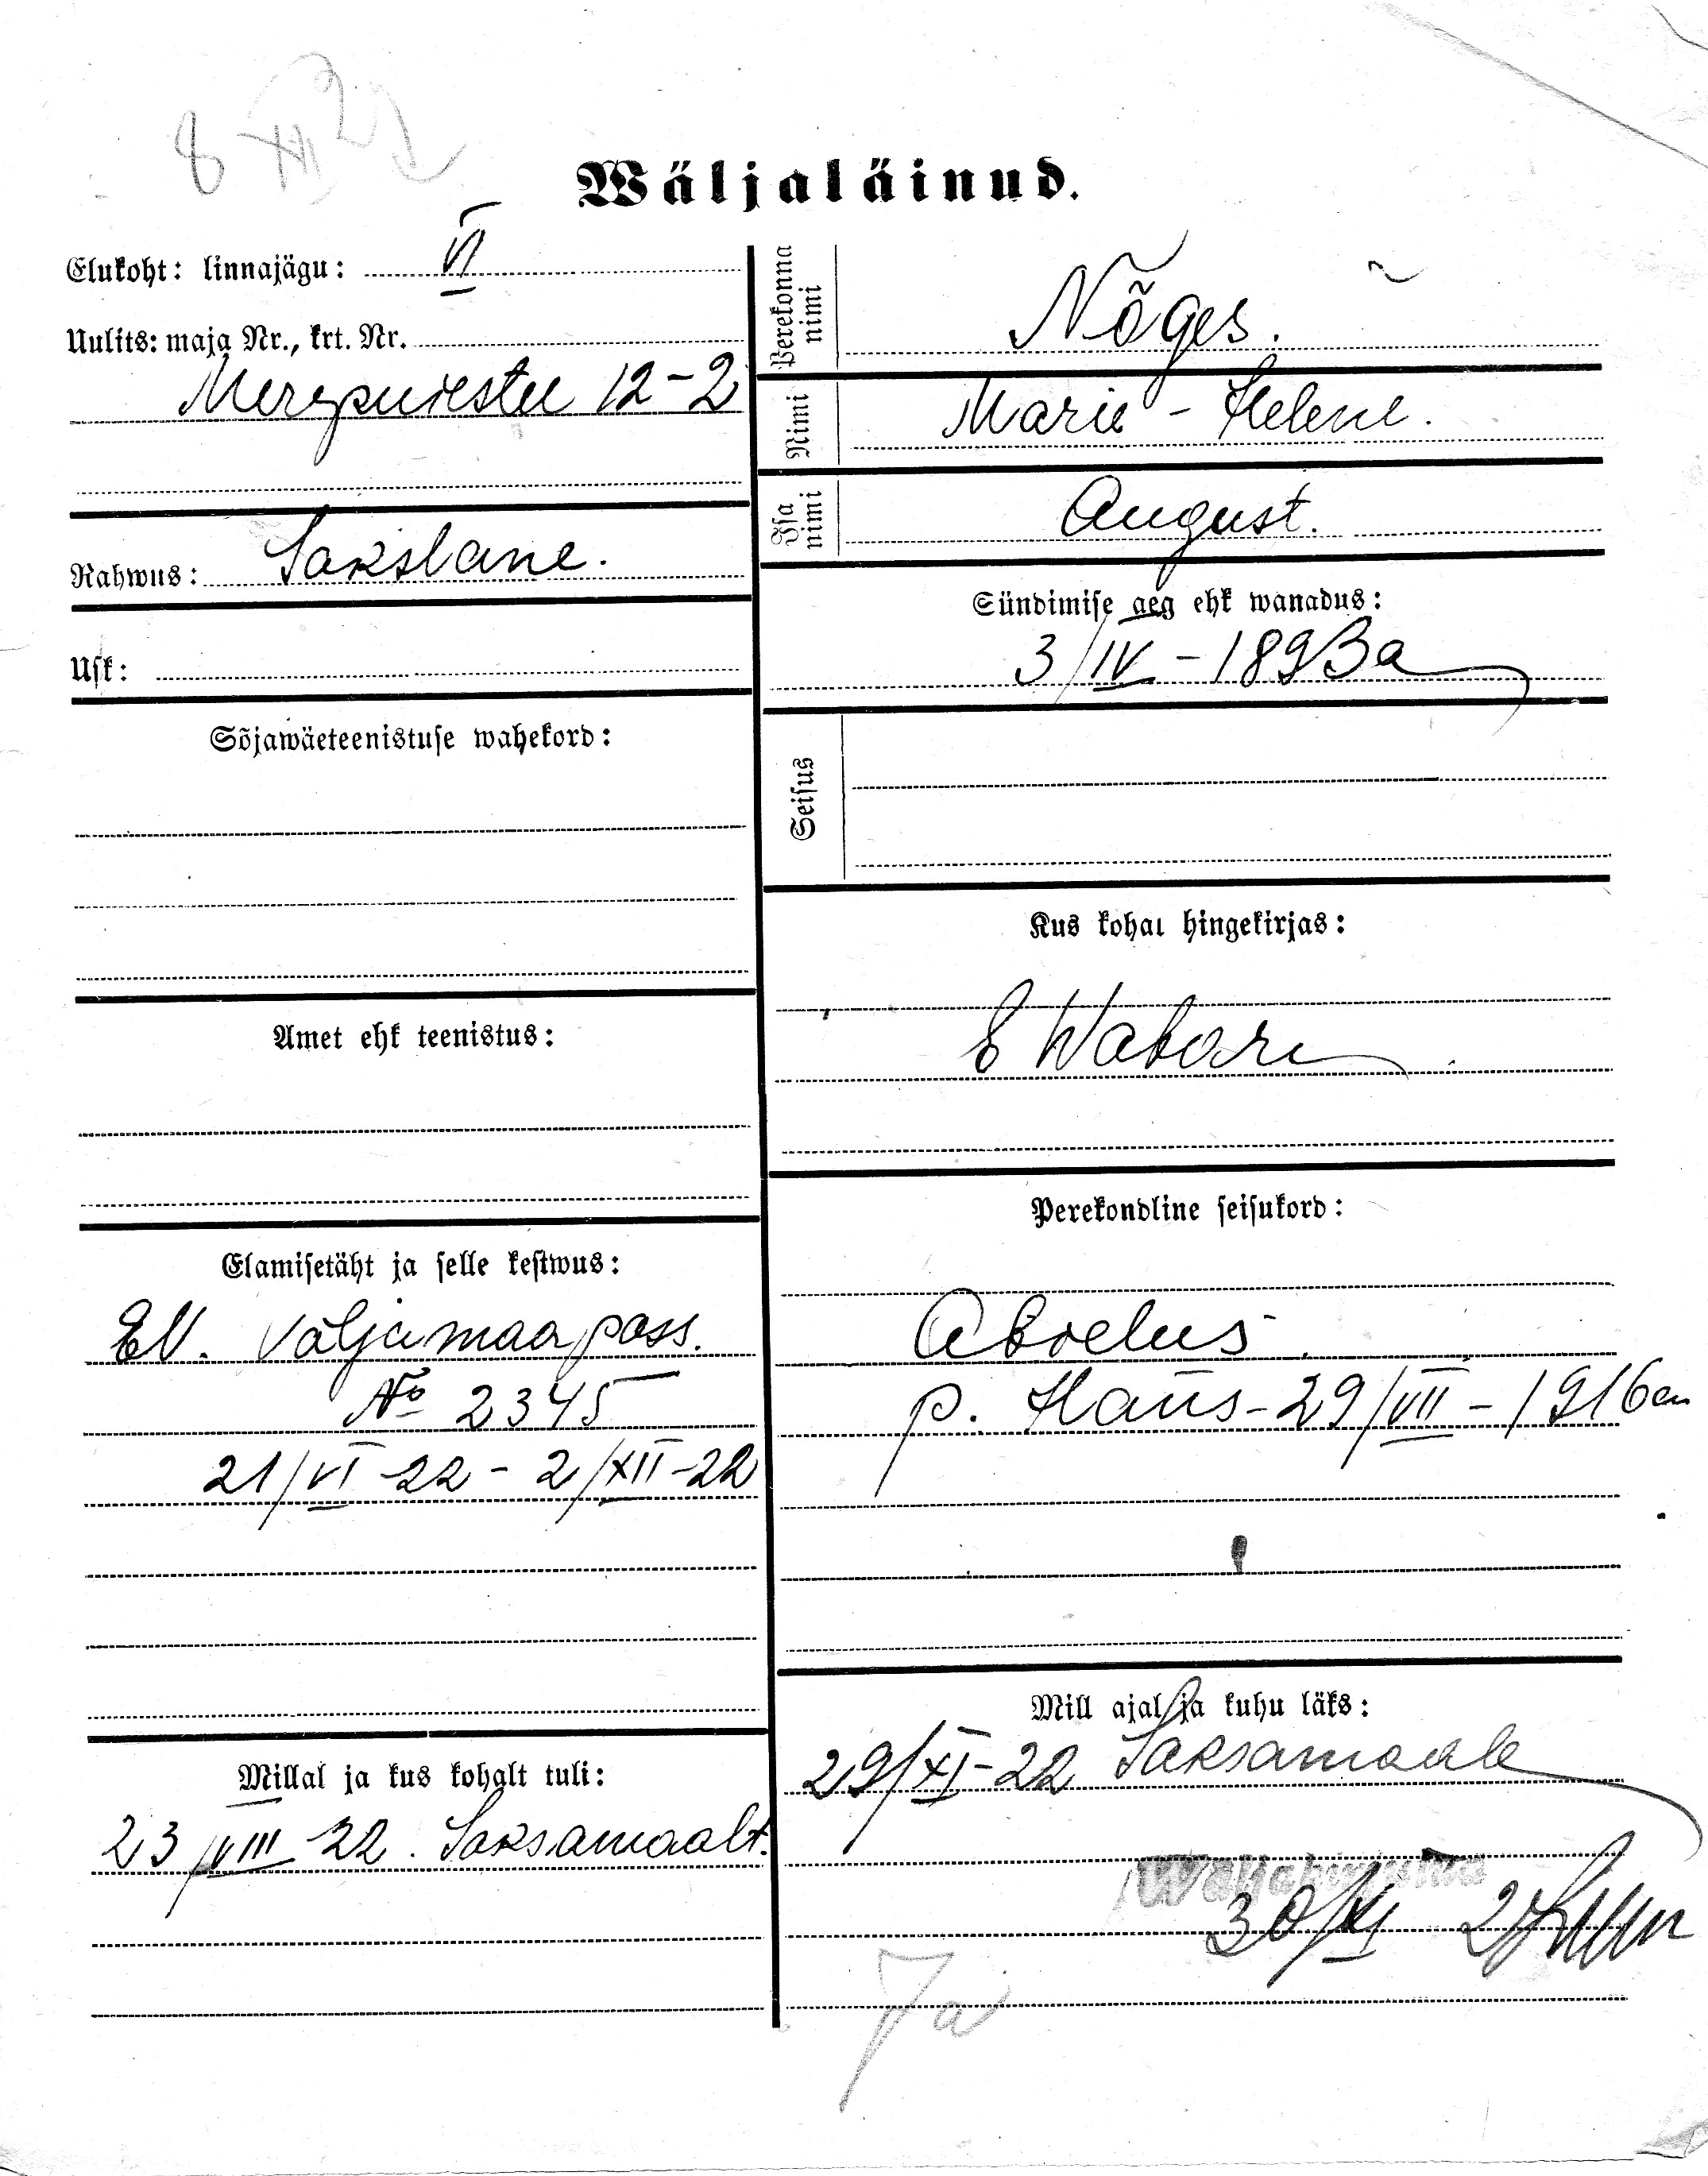 8 XII 22
Wäljaläinud.
Elukoht: linnajägu: VI
Uulits: maja Nr., krt. Nr.
Merepuiestee 12-2
Rahwus: Sakslane.
Usk:
Sõjawäeteenistuse wahekord:
Amet ehk teenistus:
Elamisetäht ja selle kestwus:
EV. väljamaa pass.
№ 2345
21/VI-22 - 2/XII-22
Millal ja kus kohalt tuli:
23/VIII 22. Saksamaalt.
Perekonna nimi
Nõges.
Nimi
Marie-Helene.
Isa nimi
August.
Sündimise aeg ehk wanadus:
3/IV-1893a
Seisus
Kus kohal hingekirjas:
E Wabari
Perekondline seisukord:
Abielus.
p. Hans-29/VII-1916a
Mill ajal ja kuhu läks:
29/XI-22 Saksamaale
Wäljakirjutud
30/XI 22
Ja